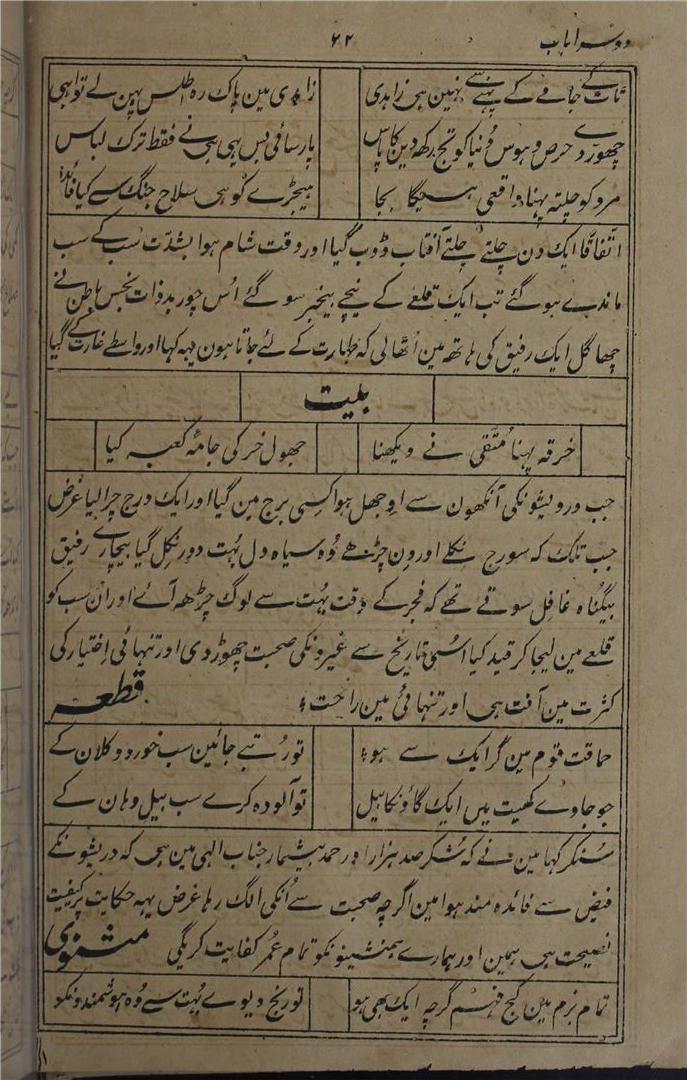 دوسرا باب
۶۲
ٹات کے جامے کے پہنے سے نہین ہی زاہدی زاہدی مین پاک رہ اطلس پہن لے تو اہی
چھوڑدے حرص و ہوس دنیا کو تج رکھ دین کا پاس پارسائی بس یہی ہی نے فقط ترک لباس
مرد کو چلتہ پہنا واقعی ہیگا بجا ہیجڑے کو ہی سلاح جنگ سے کیا فائدہ
اتفاقا ایک دن چلتے چلتے آفتاب ڈوب گیا اور وقت شام ہوا بشدت سب کے سب
ماندے ہو گئے تب ایک قلعے کے نیچے بیخبر سو گئے اُس چور بدذات نجس باطن نے
چھاگل ایک رفیق کی ہاتھ مین اُٹھالی کہ طہارت کے لئے جاتا ہون یہہ کہا اور واسطے غارت کے گیا
بیت
خرقہ پہنا متقی نے دیکھنا جھول خر کی جامۂ کعبہ کیا
جب درویشونکی آنکھون سے اوجھل ہوا کسی برج مین گیا اور ایک درج چرالیا غرض
جب تلک کہ سورج نکلے اور دن چڑھے وُہ سیاہ دل بُہت دور نکل گیا بیچارے رفیق
بیگناہ غافل سوتے تھے کہ فجر کے وقت بُہت سے لوگ چڑھہ آئے اور ان سب کو
قلعے مین لیجا کر قید کیا اُسی تاریخ سے غیرونکی صحبت چھوڑدی اور تنہائی اختیار کی
کثرت مین آفت ہی اور تنہائی مین راحت قطعہ
حماقت قوم مین گر ایک سے ہو تو رُتبے جائین سب خورد و کلان کے
جو جاوے کھیت میں ایک گاؤنکا بیل تو آلودہ کرے سب بیل وہان کے
سُنکر کہا مین نے کہ شکر صد ہزار اور حمد بیشمار جناب الہی مین ہی کہ درویشونکے
فیض سے فائدہ مند ہوا مین اگرچہ صحبت سے اُنکی الگ رہا غرض یہہ حکایت پر کیفیت
نصیحت ہی ہمین اور ہمارے ہمنشینونکو تمام عُمر کفایت کریگی مثنوی
تمام بزم مین کج فہم گرچہ ایک بھی ہو تو رنج دیوے بُہت سے وُہ ہوشمندونکو